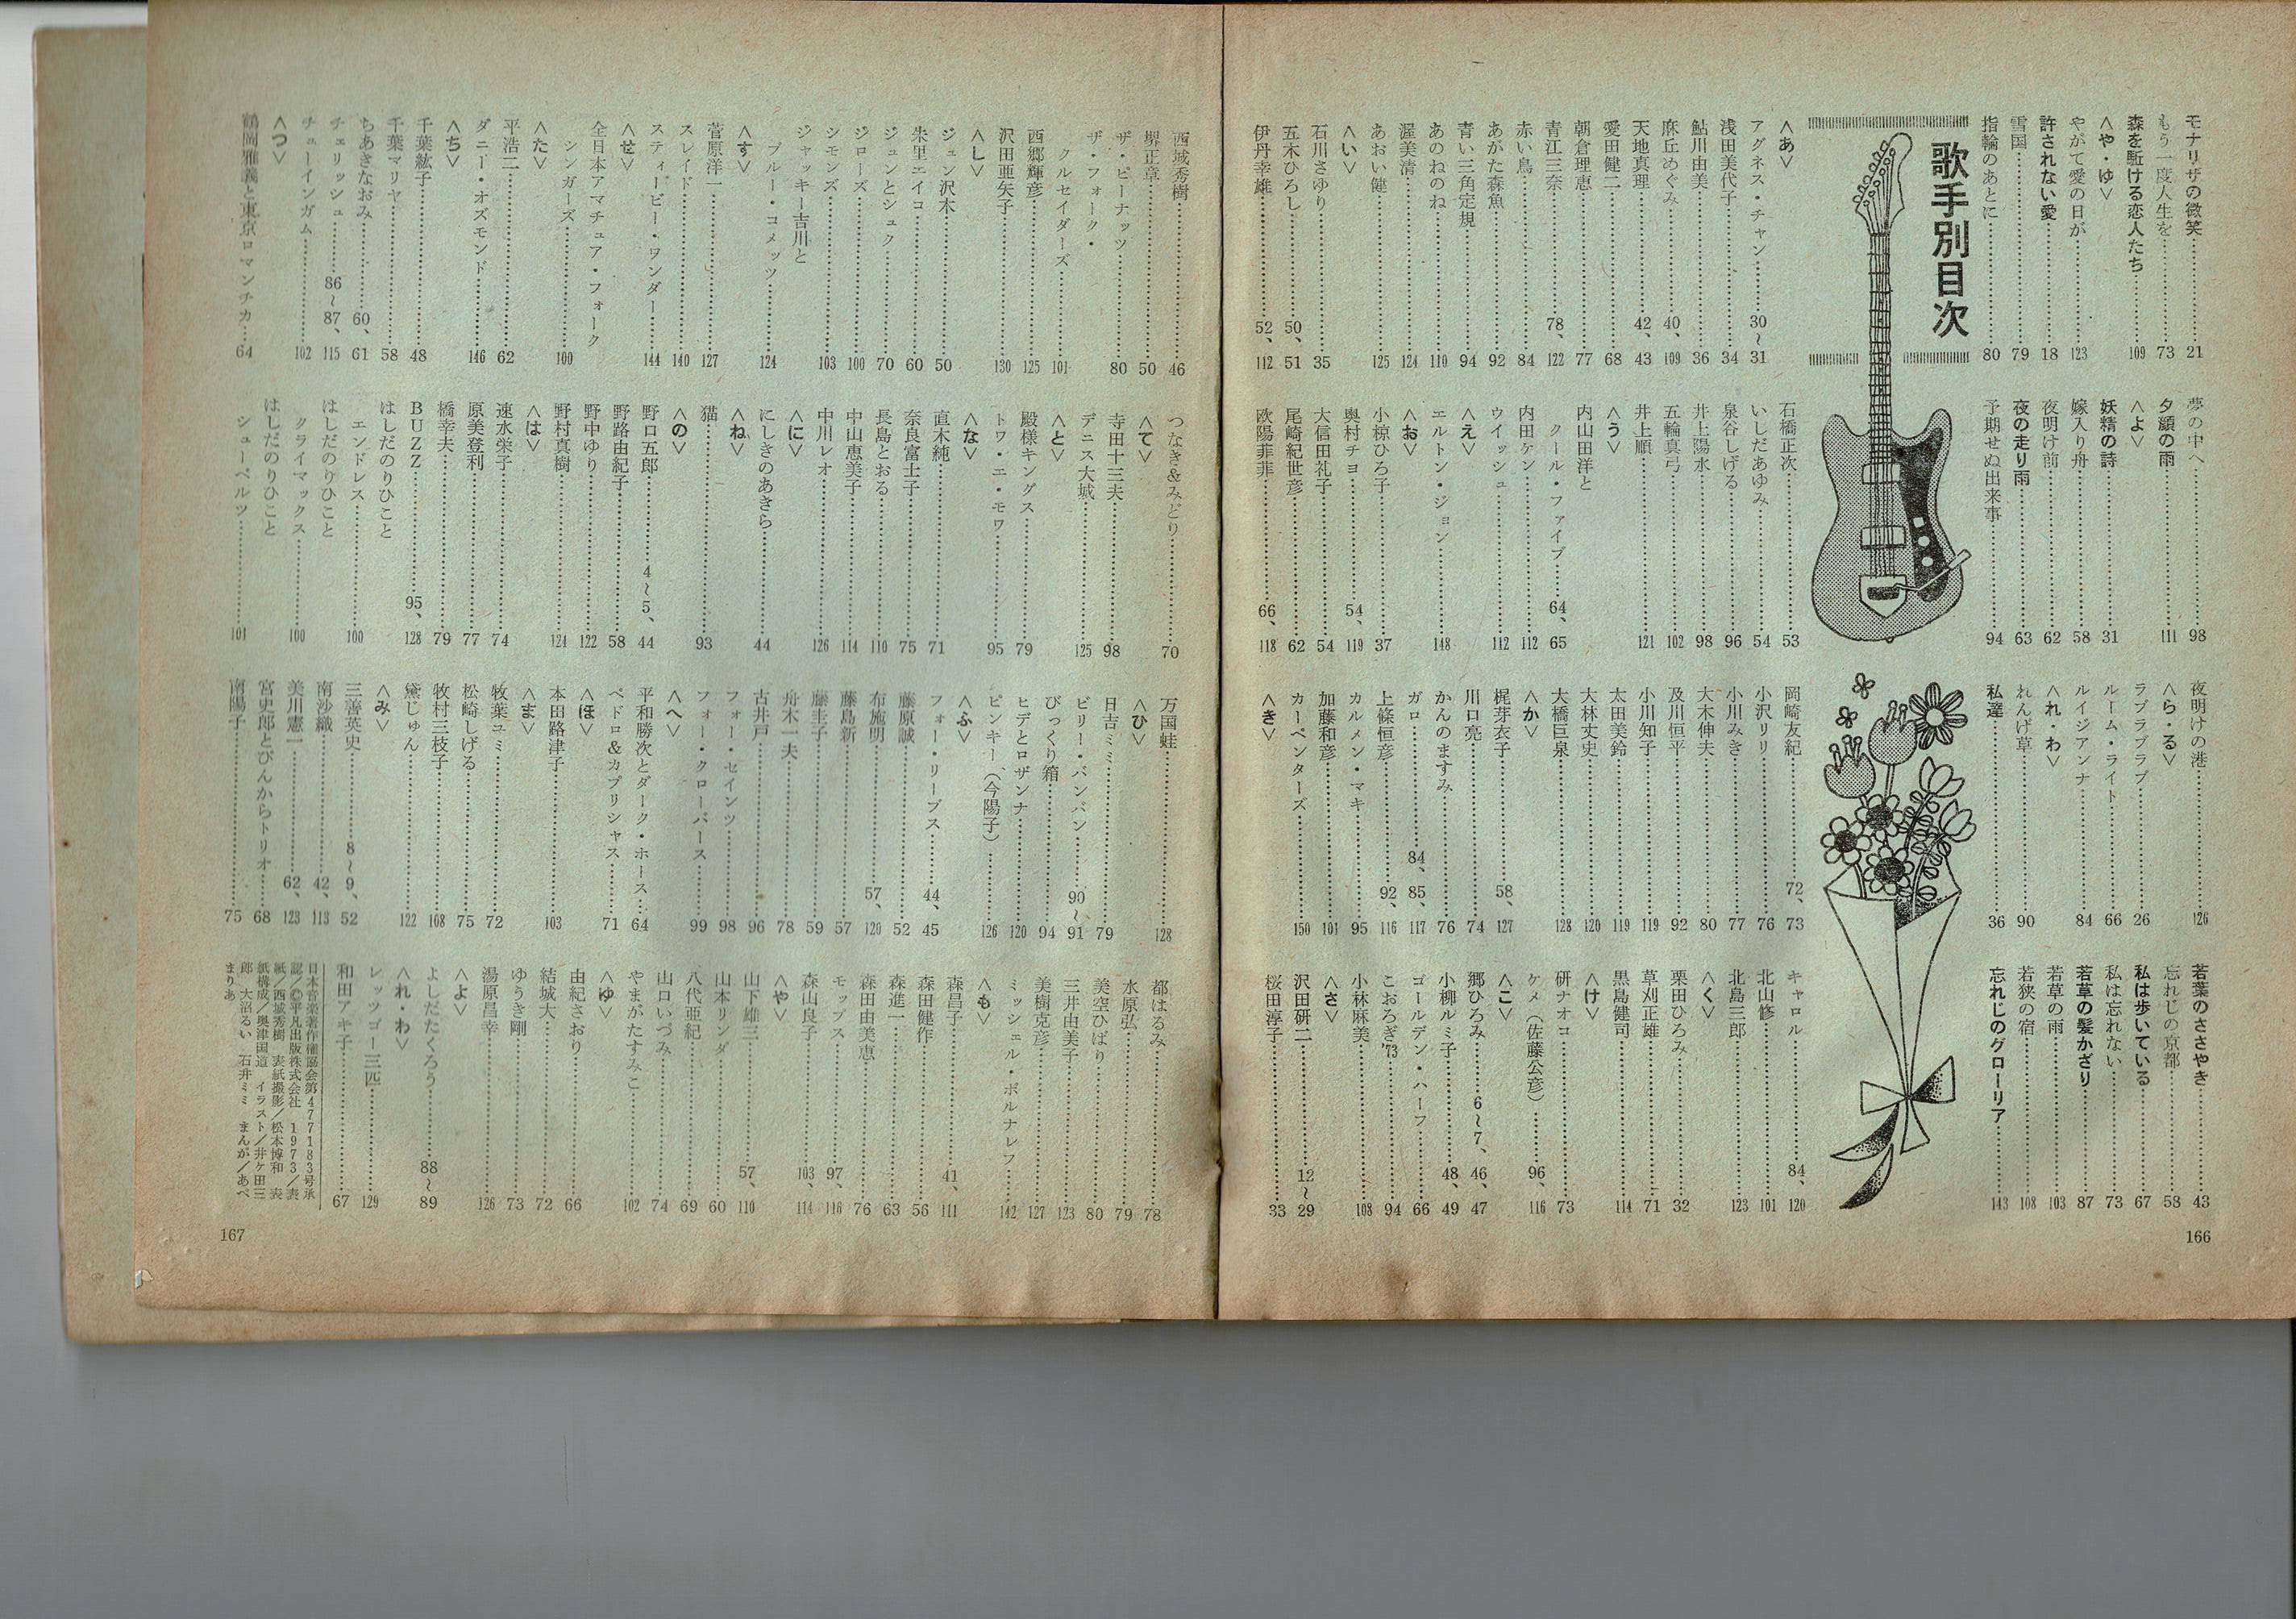 モナリザの微笑……21
もう一度人生を……73
森を駈ける恋人たち……109
〈や・ゆ〉
やがて愛の日が……123
許されない愛……18
雪国……79
指輪のあとに……80
夢の中へ……98
夕顔の雨……111
〈よ〉
妖精の詩……31
嫁入り舟……58
夜明け前……62
夜の走り雨……63
予期せぬ出来事……94
夜明けの港……126
〈ら・る〉
ラブラブラブ……26
ルーム・ライト……66
ルイジアンナ……84
〈れ・わ〉
れんげ草……90
私達……36
若葉のささやき……43
忘れじの京都……58
私は歩いている……67
私は忘れない……73
若草の髪かざり……87
若草の雨……103
若狭の宿……108
忘れじのグローリア……143
歌手別目次
〈あ〉
アグネス・チャン……30〜31
浅田美代子……34
鮎川由美……36
麻丘めぐみ……40、109
天地真理……42、43
愛田健二……68
朝倉理恵……77
青江三奈……78、122
赤い鳥……84
あがた森魚……92
青い三角定規……94
あのねのね……110
渥美清……124
あおい健……125
〈い〉
石川さゆり……35
五木ひろし……50、51
伊丹幸雄……52、112
石橋正次……53
いしだあゆみ……54
泉谷しげる……96
井上陽水……98
五輪真弓……102
井上順……121
〈う〉
内山田洋と
クール・ファイブ……64、65
内田ケン……112
ウイッシュ……112
〈え〉
エルトン・ジョン……148
〈お〉
小椋ひろ子……37
奥村チヨ……54、119
大信田礼子……54
尾崎紀世彦……62
欧陽菲菲……66、118
岡崎友紀……72、73
小沢リリ……76
小川みき……77
大木伸夫……80
及川恒平……92
小川知子……119
太田美鈴……119
大林丈史……120
大橋巨泉……128
〈か〉
梶芽衣子……58、127
川口亮……74
かんのますみ……76
ガロ……84、85、117
上條恒彦……92、116
カルメン・マキ……95
加藤和彦……101
カーペンターズ……150
〈き〉
キャロル……84、120
北山修……101
北島三郎……123
〈く〉
栗田ひろみ……32
草刈正雄……71
黒島健司……114
〈け〉
研ナオコ……73
ケメ（佐藤公彦）……96、116
〈こ〉
郷ひろみ……6〜7、46、47
小柳ルミ子……48、49
ゴールデン・ハーフ……66
こおろぎ'73……94
小林麻美……108
〈さ〉
沢田研二……12〜29
桜田淳子……33
166
西城秀樹……46
堺正章……50
ザ・ピーナッツ……80
ザ・フォーク・
クルセイダーズ……101
西郷輝彦……125
沢田亜矢子……130
〈し〉
ジュン沢木……50
朱里エイコ……60
ジュンとシュク……70
ジローズ……100
シモンズ……103
ジャッキー吉川と
ブルー・コメッツ……124
〈す〉
菅原洋一……127
スレイド……140
スティービー・ワンダー……144
〈せ〉
全日本アマチュア・フォーク
シンガーズ……100
〈た〉
平浩二……62
ダニー・オズモンド……146
〈ち〉
千葉紘子……48
千葉マリヤ……58
ちあきなおみ……60、61
チェリッシュ……86〜87、115
チューインガム……102
〈つ〉
鶴岡雅義と東京ロマンチカ……64
つなき&みどり……70
〈て〉
寺田十三夫……98
デニス大城……125
〈と〉
殿様キングス……79
トワ・エ・モワ……95
〈な〉
直木純……71
奈良富士子……75
長島とおる……110
中山恵美子……114
中川レオ……126
〈に〉
にしきのあきら……44
〈ね〉
猫……93
〈の〉
野口五郎……4〜5、44
野路由紀子……58
野中ゆり……122
野村真樹……124
〈は〉
速水栄子……74
原美登利……77
橋幸夫……79
BUZZ……95、128
はしだのりひこと
エンドレス……100
はしだのりひこと
クライマックス……100
はしだのりひこと
シューベルツ……101
万国蛙……128
〈ひ〉
日吉ミミ……79
ビリー・バンバン……90〜91
びっくり箱……94
ヒデとロザンナ……120
ピンキー、（今陽子）……126
〈ふ〉
フォー・リーブス……44、45
藤原誠……52
布施明……57、120
藤島新……57
藤圭子……59
舟木一夫……78
古井戸……96
フォー・セインツ……98
フォー・クローバース……99
〈へ〉
平和勝次とダーク・ホース……64
ペドロ&カプリシャス……71
〈ほ〉
本田路津子……103
〈ま〉
牧葉ユミ……72
松崎しげる……75
牧村三枝子……108
黛じゅん……122
〈み〉
三善英史……8〜9、52
南沙織……42、113
美川憲一……62、123
宮史郎とぴんからトリオ……68
南陽子……75
都はるみ……78
水原弘……79
美空ひばり……80
三井由美子……123
美樹克彦……127
ミッシェル・ポルナレフ……142
〈も〉
森昌子……41、111
森田健作……56
森進一……63
森田由美恵……76
モップス……97、116
森山良子……103、114
〈や〉
山下雄三……57、110
山本リンダ……60
八代亜紀……69
山口いづみ……74
やまがたすみこ……102
〈ゆ〉
由紀さおり……66
結城大……72
ゆうき剛……73
湯原昌幸……126
〈よ〉
よしだたくろう……88〜89
〈れ・わ〉
レッツゴー三匹……129
和田アキ子……67
日本音楽著作権協会第477183号承
認／©平凡出版株式会社 1973／表
紙／西城秀樹 表紙撮影／松本博和 表
紙構成／奥津国道 イラスト／井ケ田三
郎 大沼るい 石井ミミ まんが／あべ
まりあ
167